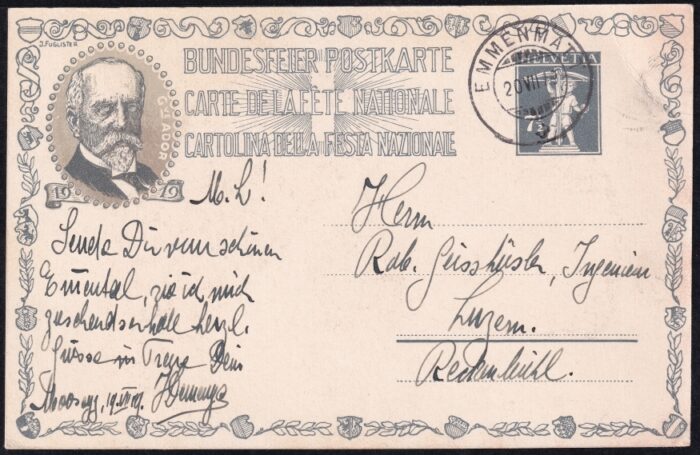 J. FUGLISTER
BUNDESFEIER POSTKARTE
CARTE DE LA FÊTE NATIONALE
CARTOLINA DELLA FESTA NAZIONALE
G. ADOR
19 19
EMMENMATT
20 VII
HELVETIA
7½
M. L!
Sende Dir vom schönen
Emmental, wo ich mich
herzl.
Grüsse in Treue Dein
Moosegg, 19. VII 19.
Herrn
Rob. Geisshüsler, Ingenieur
Luzern.